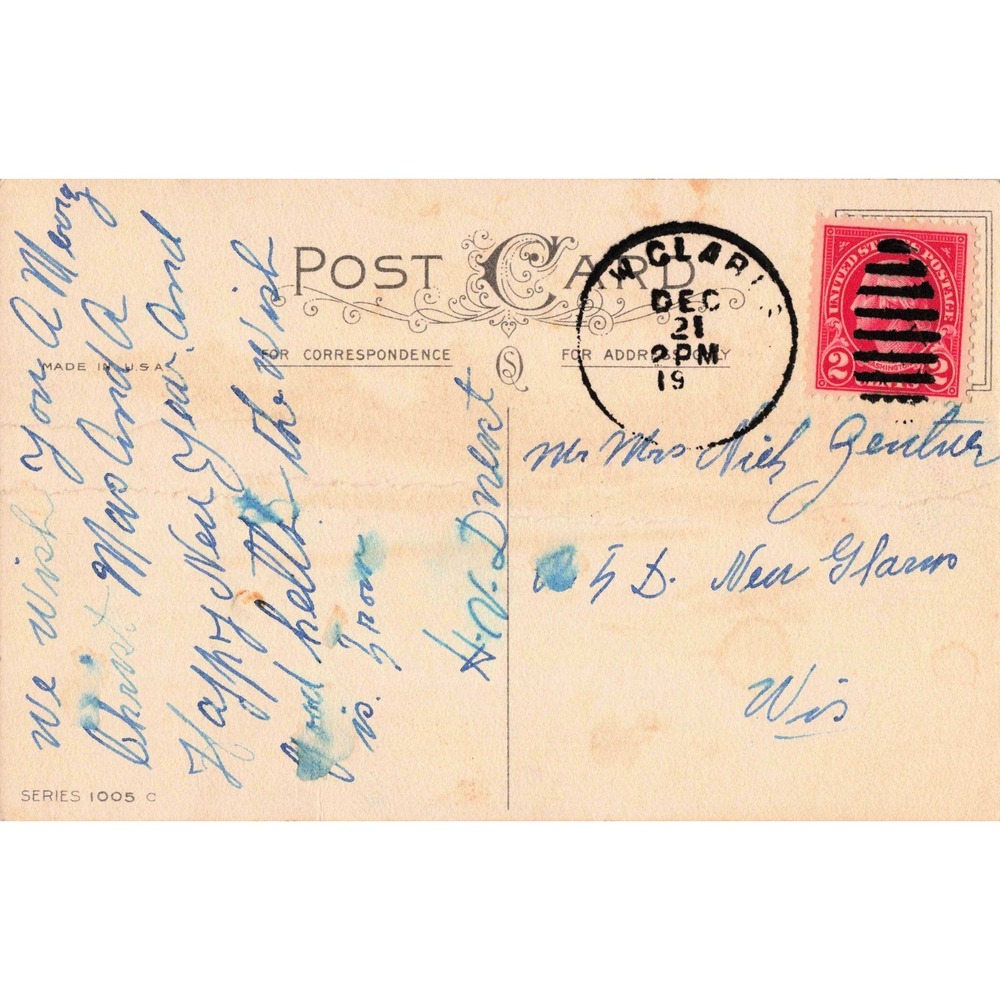 POST CARD
MADE IN U.S.A.
FOR CORRESPONDENCE
FOR ADDRESS ONLY
W GLARUS
DEC
21
2 PM
19
UNITED STATES POSTAGE
WASHINGTON
2 CENTS 2
We wish You A Merry
Christ Mas And A
Happy New Year. And
good helth the wish
is. From
H. V. Dnest
Mr Mrs Nick Gentner
D. New Glarus
Wis
SERIES 1005 C